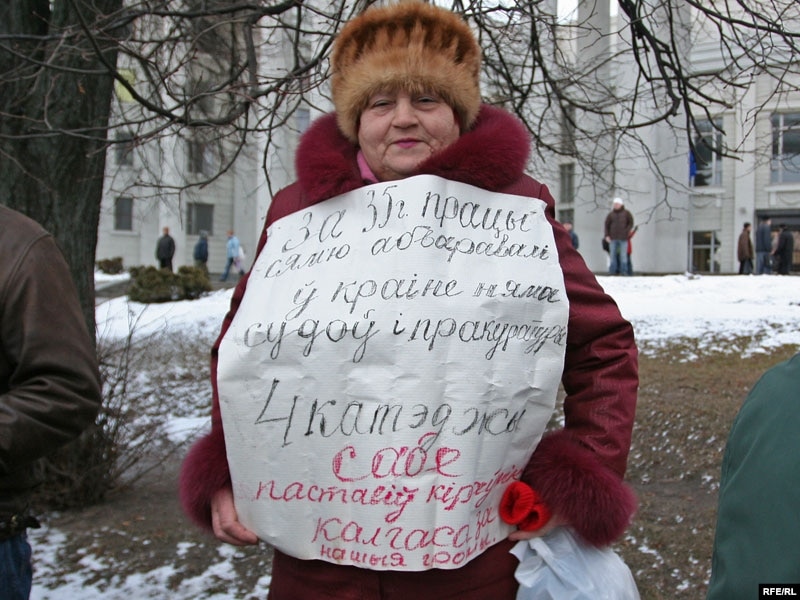 За 35г. працы
сямю абъаравалі
ў краіне няма
судоў і пракуратуры
4 катэджы
сабе
паставіў кіраўнік
калгаса за
нашыя грошы.
RFE/RL